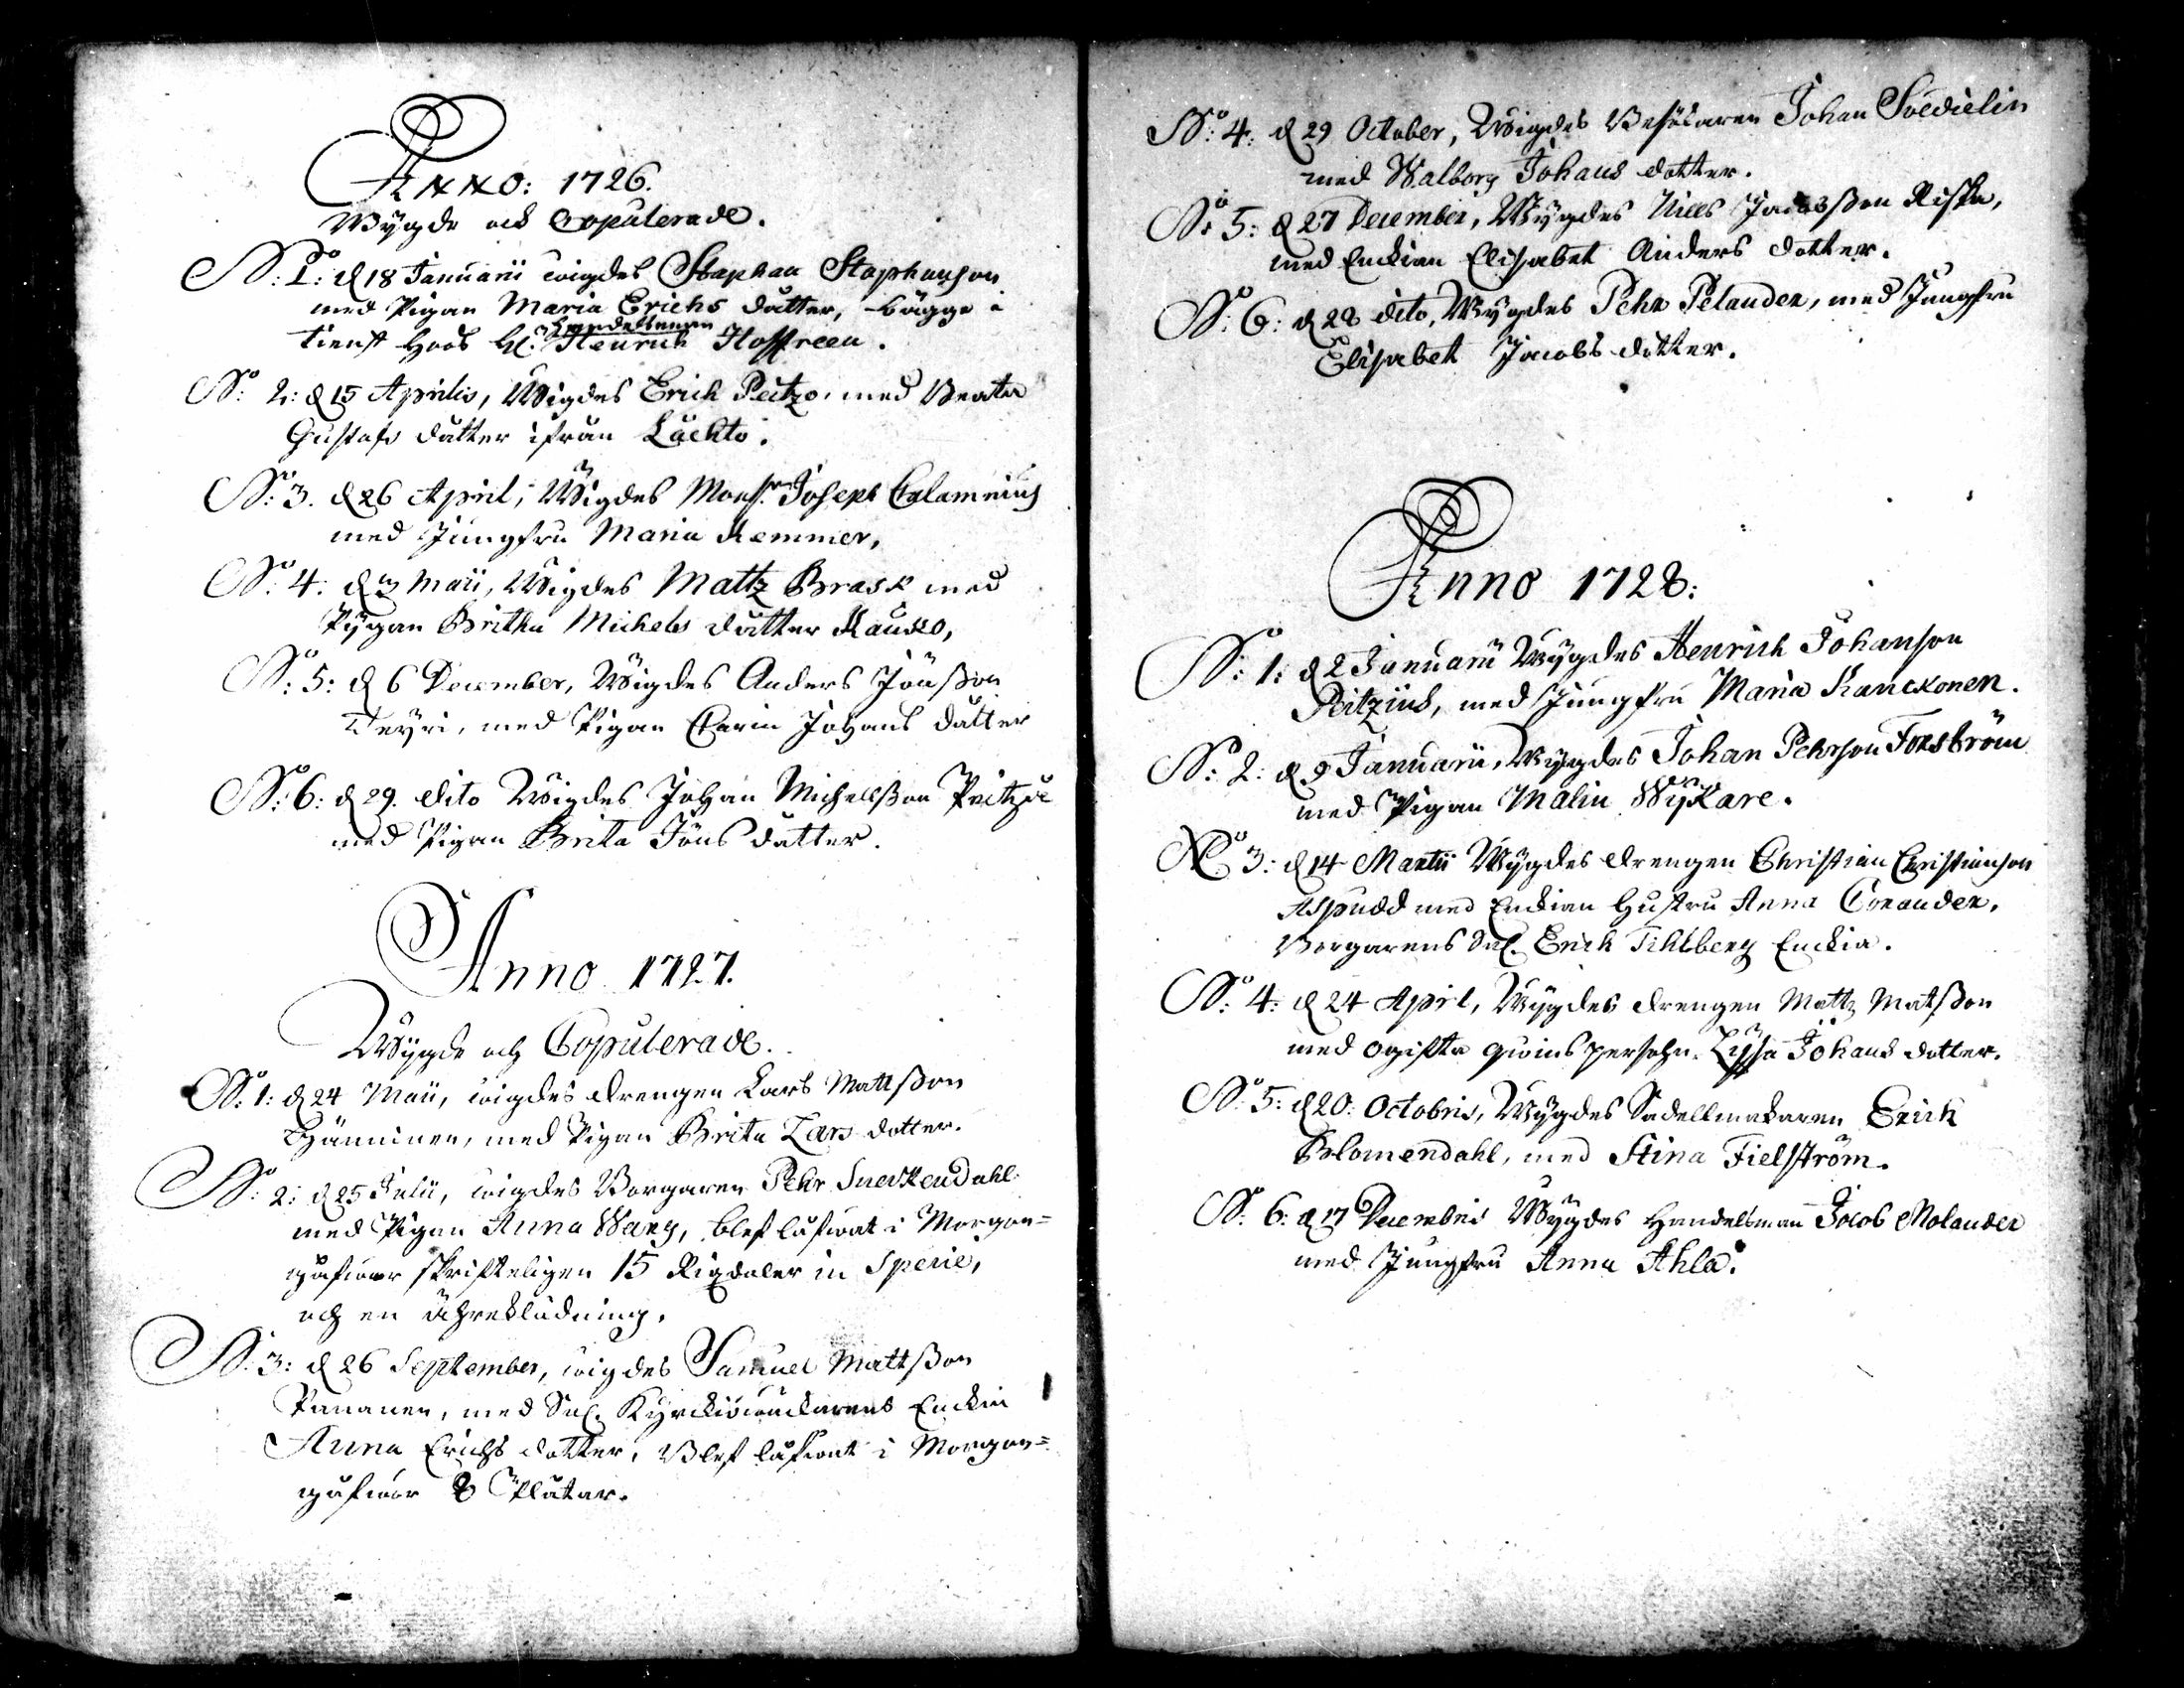 Anno: 1726.
Wygde och Copulerade.
No: 1: d 18 Januarii wigdes Staphan Staphanson
med Pigan Maria Erichs dåtter, bägge i
Handelsman
tienst hoos H: Henrich Hoffreen.
No: 2: d 15 Aprilis, Wigdes Erich Peitzo, med Beata
Gustafs dåtter ifrån Lachto.
No: 3. d 26 April, Wigdes Monsr. Joseph Calamnius
med Jungfru Maria Kemmer,
No: 4. d 3 Maii, Wigdes Mattz Brask med
Pygan Britha Michels dåtter Kauko,
No: 5: d 6 December, Wigdes Anders Jönßon
Teyri, med Pigan Carin Johans dåtter
No: 6: d 29. dito Wigdes Johan Michellßon
med Pigan Brita Jöns dåtter.
Anno 1727.
Wygde och Copulerade.
No: 1: d 24 Maii, wigdes drengen Lars Mattßon
Hänninen, med Pigan Brita Lars dotter.
No: 2: d 25 Julii, wigdes Borgaren Pehr Sneckendahl
med Pigan Anna Wang, blef låfwat i Morgon=
gåfwor skrifteligen 15 Rigdaler in Specie,
och en Ährekládning.
No: 3: d 26 September, wigdes Samuel Mattßon
Pananen, med Sal. Kyrckiowäcktarens Enckia
Anna Erichs dotter, Blef låfwat i Morgon=
gåfwor 8 Plåtar.
No: 4: d 29 October, Wigdes Besökaren Johan
med Walborg Johans dotter.
No: 5: d 27 December, Wygdes Niels Jacobßon Riska,
med Enckian Elisabet Anders dotter.
No: 6: d 28 dito, Wygdes Pehr Pelander, med Jungfru
Elisabet Jacobs dotter.
Anno 1728:
No: 1: d 2 Januarii Wygdes Henrich Johanson
Peitzius, med Jungfru Maria Kanckonen.
No: 2: d 9 Januarii, Wygdes Johan Pehrson Forsström
med Pigan Malin Wÿkare.
No: 3: d 14 Martii Wygdes drengen Christian Christianson
Aspudd med Enckian Hustru Anna Corander,
Borgarens Sal. Erich Tihlberg Enckia.
No: 4: d 24 April, Wygdes drengen Mattz Matßon
med ogifta qwins persohn Lysa Johans dotter.
No: 5: d 20: Octobris, Wygdes Sadellmakaren Erich
Blomendahl, med Stina Fielström.
No: 6: d 17 Decembris Wygdes Handelsman Jacob Molander
med Jungfru Anna Ahla.